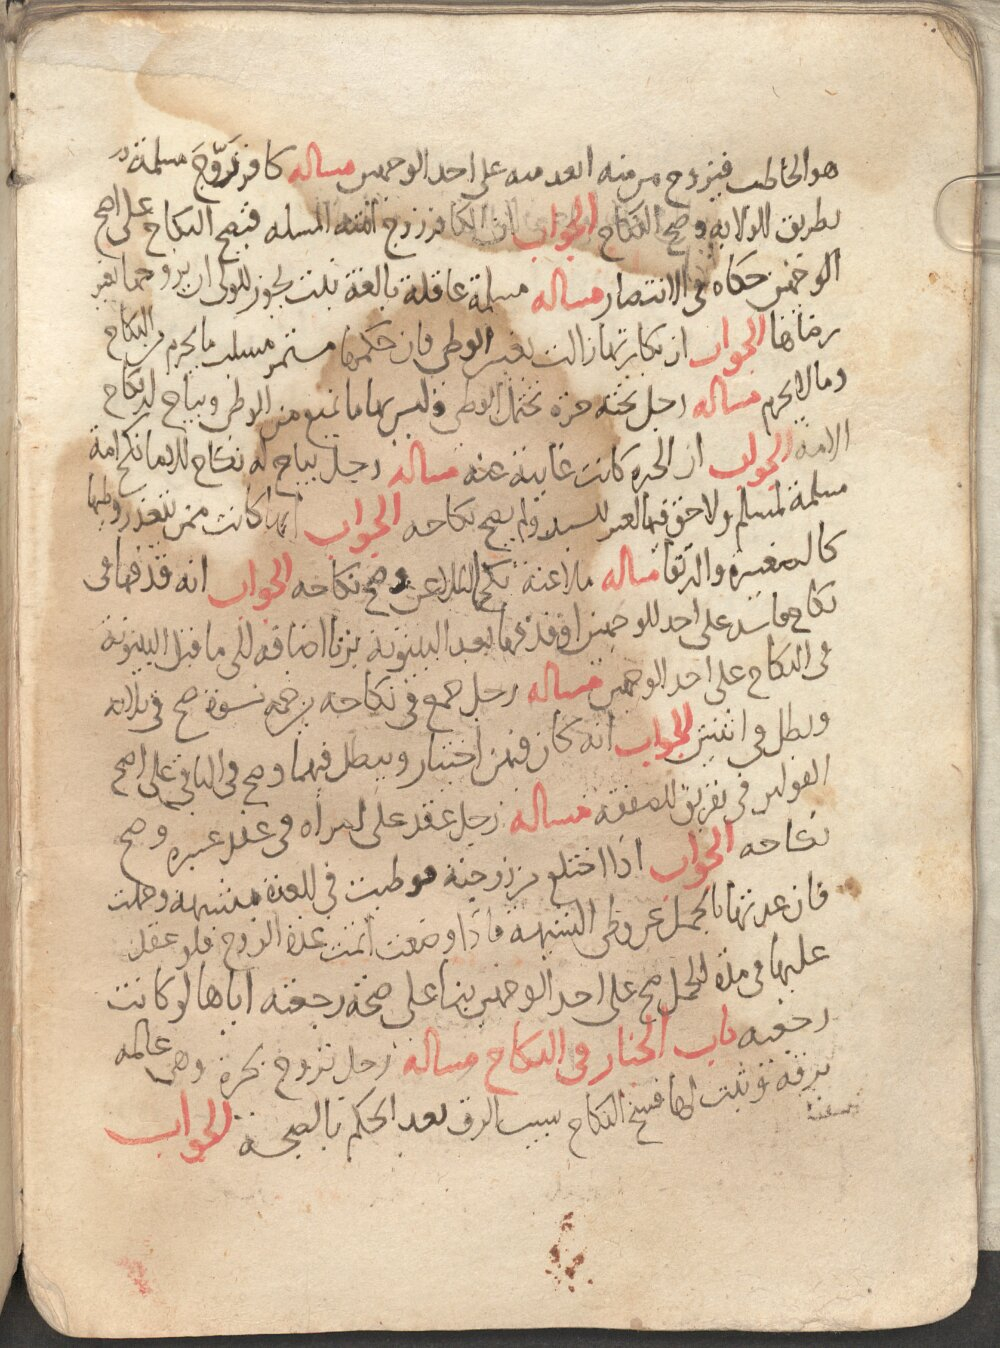 هو الخاطب فيزوج من منه ابعد منه على احد الوجهين مساله كافر تزوج مسلمة
بطريق الولايه وصح النكاح الجواب ان الكافر زوج امته المسلمه فيصح النكاح على اصح
الوجهين حكاه في الانتصار مساله مسلمة عاقلة بالغة ثيب يجوز للولي ان يزوجها بغير
رضاها الجواب ان بكارتها زالت بغير الوطي فان حكمها مستمر مساله ما يحرم من النكاح
وما لا يحرم مساله رجل تحته حرة تحتمل الوطي وليس بها ما يمنع من الوطي ويباح له نكاح
الامة الجواب ان الحره كانت غايبة عنه مساله رجل يباح له نكاح الاما نكح امة
مسلمة لمسلم ولا حق فيها لغير السيد ولم يصح نكاحه الجواب انها كانت ممن يتعذر وطيها
كالصغيرة والرتقا مساله ملاعنة نكحها الملاعن وصح نكاحه الجواب انه قذفها في
نكاح فاسد على احد الوجهين او قذفها بعد البينونة بزنا اضافه الى ما قبل البينونة
في النكاح على احد الوجهين مساله رجل جمع في نكاحه خمسة نسوة صح في ثلاثة
وبطل في اثنتين الجواب انه كان فيهن اختان ويبطل فيهما وصح في الباقي على اصح
القولين في تفريق الصفقة مساله رجل عقد على امراه في عدة غيره وصح
نكاحه الجواب اذا اختلع من زوجته فوطيت في العدة بشبهة وحملت
فان عدتها بالحمل عن وطي الشبهة فاذا وضعت اتمت عدة الزوج فلو عقد
عليها في مدة الحمل صح على احد الوجهين بنا على صحة رجعته اياها لو كانت
رجعيه باب الخيار في النكاح مساله رجل تزوج بحرة وهي عالمه
برقه ثبت لها فسخ النكاح بسبب الرق بعد الحكم بالصحة الجواب